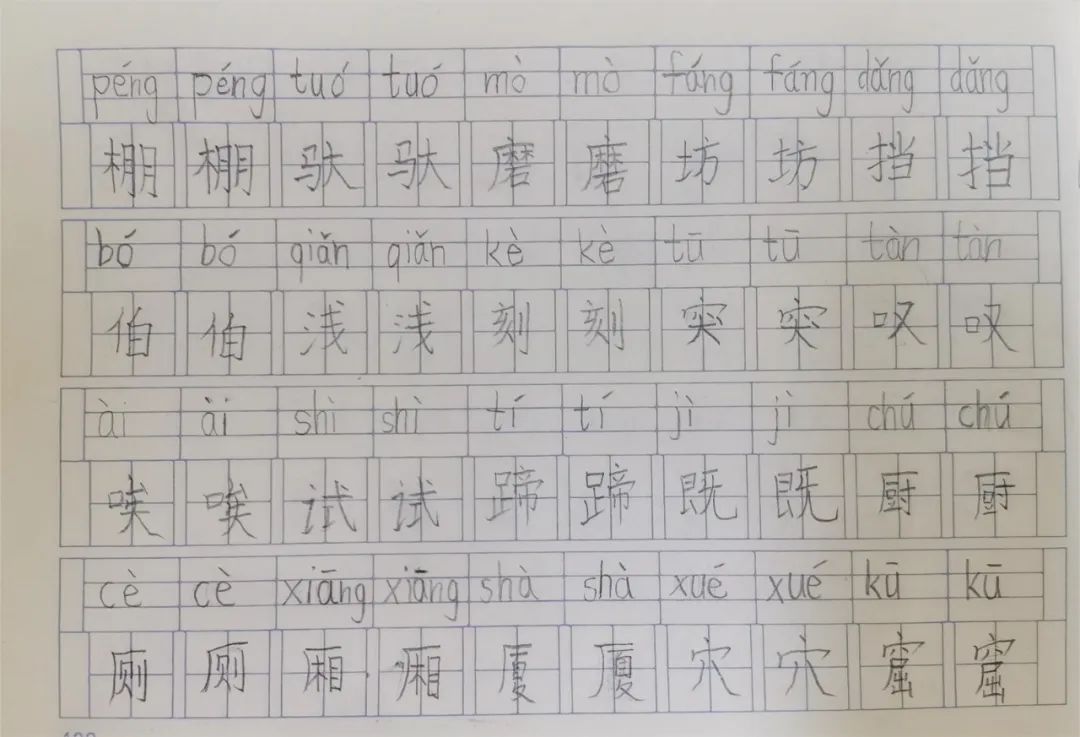 péng péng tuó tuó mò mò fáng fáng dǎng dǎng
棚 棚 驮 驮 磨 磨 坊 坊 挡 挡
bó bó qiǎn qiǎn kè kè tū tū tàn tàn
伯 伯 浅 浅 刻 刻 突 突 叹 叹
ài ài shì shì tí tí jì jì chú chú
唉 唉 试 试 蹄 蹄 既 既 厨 厨
cè cè xiāng xiāng shà shà xué xué kū kū
厕 厕 厢 厢 厦 厦 穴 穴 窟 窟